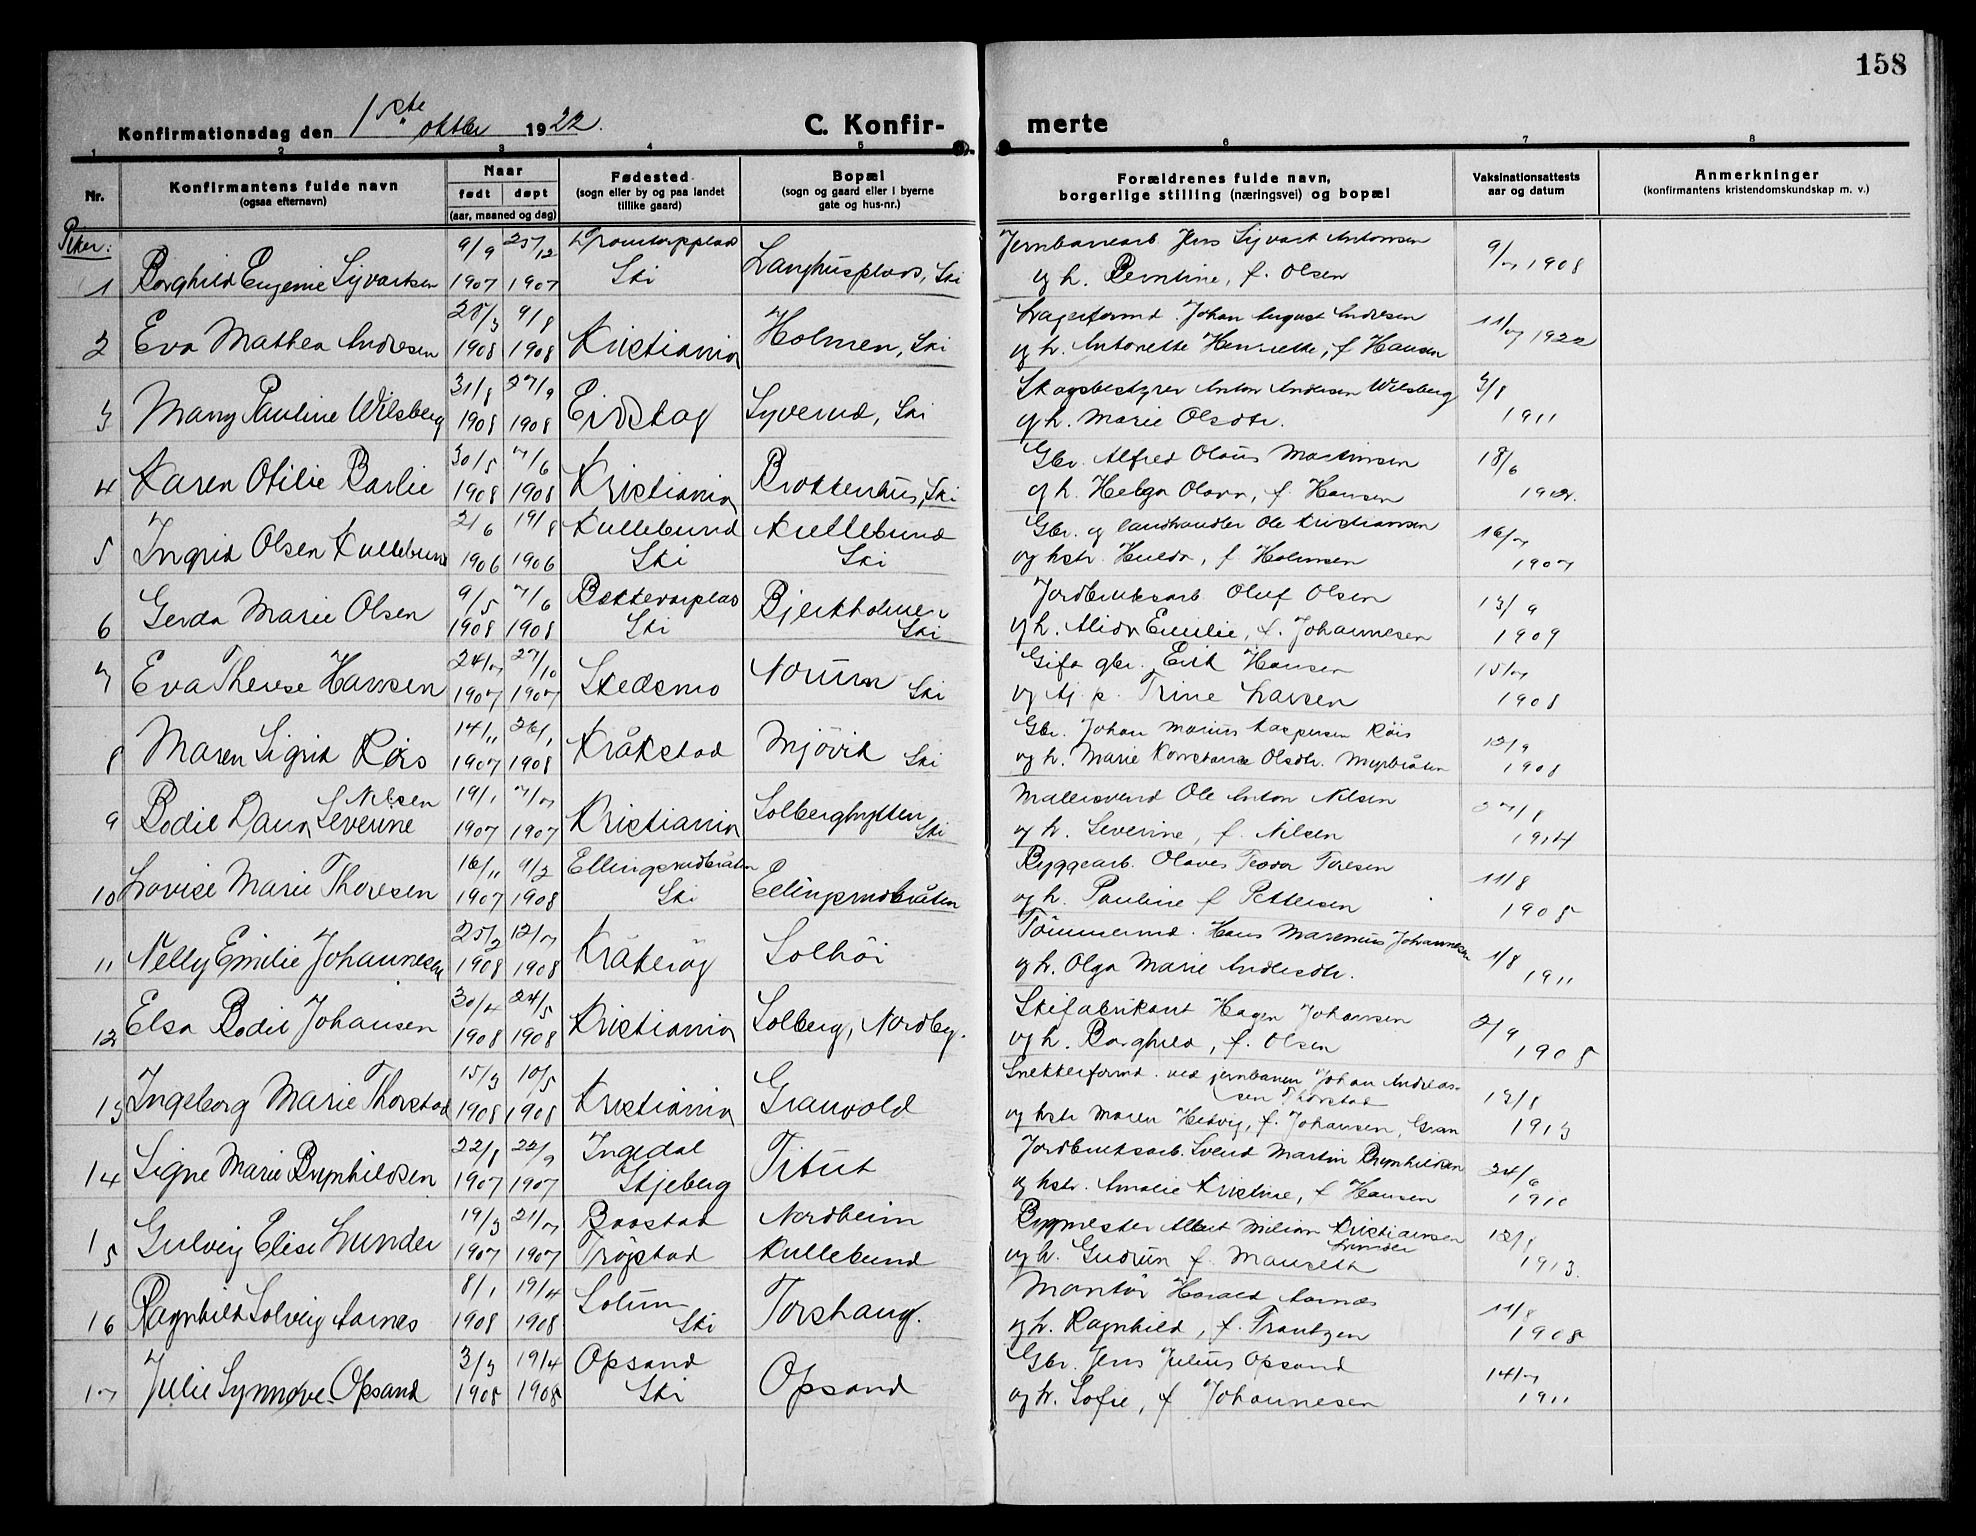 158
Konfirmationsdag den 1ste oktbr 1922.
C. Konfirmerte
1 2 3 4 5 6 7 8
Nr. Konfirmantens fulde navn (ogsaa efternavn) Naar født døpt (aar, maaned og dag) Fødested (sogn eller by og paa landet tillike gaard) Bopæl (sogn og gaard eller i byerne gate og hus-nr.) Forældrenes fulde navn, borgerlige stilling (næringsvei) og bopæl Vaksinationsattests aar og datum Anmerkninger (konfirmantens kristendomskundskap m. v.)
Piker:
9/9 25/12 Jernbanearb. Jens Syvart Antonsen
1 Borghild Eugenie Syvartsen 1907 1907 Ski Langhusplass, Ski og h. Berntine, f. Olsen 1908
9/8 Lagerformd. Johan August Andresen
2 Eva Mathea Andresen 1908 1908 Kristiania Holmen, Ski og h. Antonette Henriette, f. Hansen 11/7 1922
31/8 27/9 Skogsbestyrer Anton Andersen Wilsberg 3/8
3 Manny Pauline Wilsberg 1908 1908 Eidskog Syverud, Ski og h. Marie Olsdtr. 1911
30/5 7/6 Gbr. Alfred Olaus Martinsen 18/6
4 Karen Otilie Barlie 1908 1908 Kristiania Brottenhus, Ski og h. Helga Olava, f. Hansen
2/6 19/8 Kullebund Kullebund Gbr. og landhandler Ole Kristiansen 16/7
5 Ingrid Olsen Kullebund 1906 1906 Ski Ski og hstr. Hulda, f. Holmsen 1907
9/5 7/6 Bjerkholmen Jordbruksarb. Oluf Olsen 13/9
6 Gerda Marie Olsen 1908 1908 Ski Ski og h. Alida Emilie, f. Johannesen 1909
24/7 27/10 Gifo gbr. Erik Hansen 15/7
7 Eva Therese Hansen 1907 1907 Skedsmo Norum Ski og Trine Larsen 1908
14/11 26/1 Gbr. Johan Marius Kaspersen Røis 12/9
8 Maren Sigrid Røis 1907 1908 Kråkstad Mjövik Ski og h. Marie Konstanse Olsdtr. Myrbråten 1908
19/1 7/7 Malersvend Ole Anton Nilsen 27/8
9 Bodil Dana Severine Nilsen 1907 1907 Kristiania Solberghytten Ski og h. Severine, f. Nilsen 1914
16/11 9/2 Ellingsrudbråten Byggearb. Olaves Teodor Toresen 11/8
10 Lovise Marie Thoresen 1907 1908 Ski Ellingsrudbråten og h. Pauline f. Pettersen 1908
25/2 12/7 Tömmermd. Hans Marenius Johannesen 1/8
11 Nelly Emilie Johannesen 1908 1908 Kråkeröy Solhöi og h. Olga Marie Andersdtr. 1911
30/4 24/5 Skifabrikant Hagen Johansen 2/9
12 Elsa Bodil Johansen 1908 1908 Kristiania Solberg, Nordby. og h. Borghild, f. Olsen 1908
15/3 10/5 Snekkerformd. ved jernbanen Johan Andreassen Thorstad 13/8
13 Ingeborg Marie Thorstad 1908 1908 Kristiania Granvold og hstr Maren Hedvig, f. Johansen, Gran 1913
22/8 22/9 Ingedal Jordbruksarb. Svend Martin Brynhildsen 24/6
14 Signe Marie Brynhildsen 1907 1907 Skjeberg Titut og hstr. Amalie Kristine, f. Hansen 1910
19/3 21/7 Baastad Nordheim Bygmester Albert Milian Kristiansen Lunder 12/8
15 Gulveig Elise Lunder 1907 1907 Trögstad Kullebund og h. Gudrun f. Mauseth 1913.
8/1 19/4 Solum Montör Harald Aarnæs 11/8
16 Ragnhild Solveig Aarnes 1908 1908 Ski Torshaug. og h. Ragnhild, f. Frantzen 1908
3/3 19/4 Opsand Gbr. Jens Julius Opsand 14/7
17 Julie Synnøve Opsand 1908 1908 Ski Opsand og h. Sofie, f. Johannesen 1911